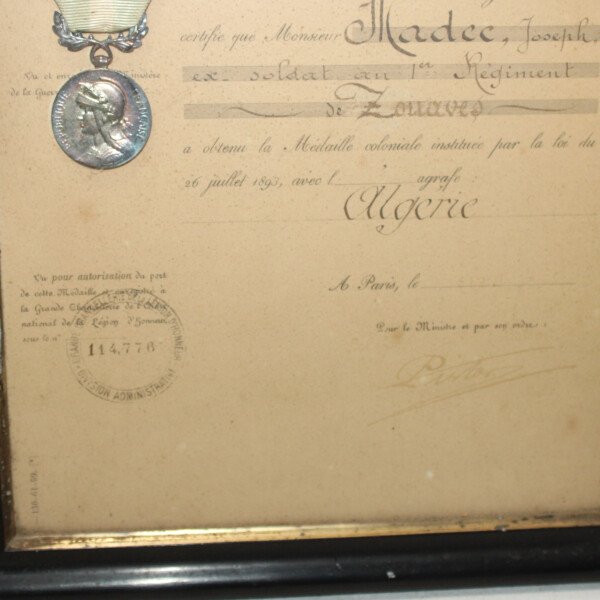 certifie que Monsieur Madec, Joseph,
ex-soldat au 1er Régiment
de Zouaves
a obtenu la Médaille coloniale instituée par la loi du
26 juillet 1893, avec l' agrafe
Algérie
A Paris, le
Pour le Ministre et par son ordre:
de la Guerre
RÉPUBLIQUE FRANÇAISE
Vu pour autorisation du port
de cette Médaille et enregistré à
la Grande Chancellerie de l'Ordre
national de la Légion d'Honneur
sous le n°
114,776
DIVISION ADMINISTRAT